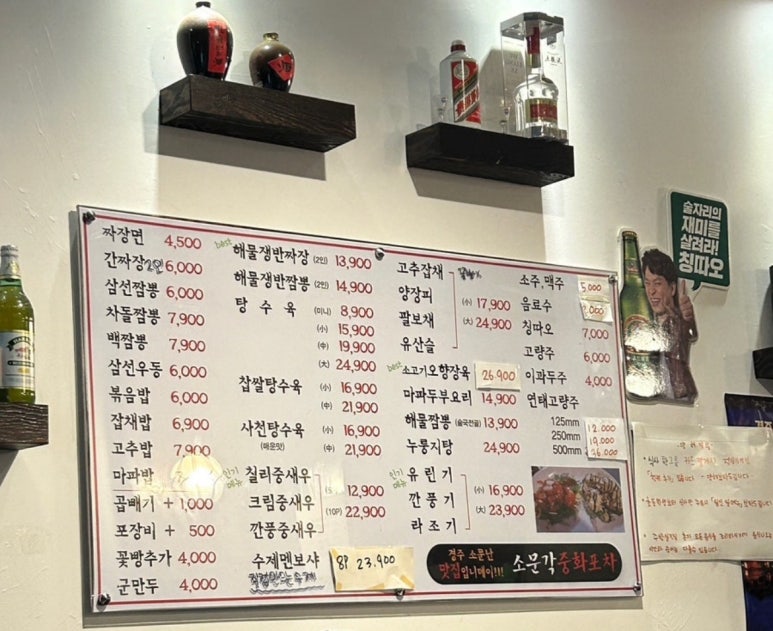 짜장면 4,500
간짜장 2인 6,000
삼선짬뽕 6,000
차돌짬뽕 7,900
백짬뽕 7,900
삼선우동 6,000
볶음밥 6,000
잡채밥 6,900
고추밥 7,900
마파밥
곱빼기 + 1,000
포장비 + 500
꽃빵추가 4,000
군만두 4,000
best 해물쟁반짜장 (2인) 13,900
해물쟁반짬뽕 (2인) 14,900
탕수육 (미니) 8,900
(小) 15,900
(中) 19,900
(大) 24,900
찹쌀탕수육 (小) 16,900
(中) 21,900
사천탕수육 (小) 16,900
(매운맛) (中) 21,900
인기메뉴 칠리중새우
크림중새우
깐풍중새우
12,900
(10P) 22,900
수제멘보샤 8P 23.900
고추잡채
양장피
팔보채
유산슬
(小) 17,900
(大) 24,900
best 소고기오향장육 26.900
마파두부요리 14,900
해물짬뽕 (술국전골) 13,900
누룽지탕 24,900
인기메뉴 유린기
깐풍기
라조기
(小) 16,900
(大) 23,900
소주,맥주 5,000
음료수 2,000
칭따오 7,000
고량주 6,000
이과두주 4,000
연태고량주
125mm 12.000
250mm 19.000
500mm 26.000
경주 소문난
맛집입니데이!!!
소문각중화포차
술자리의
재미를
살려라!
칭따오